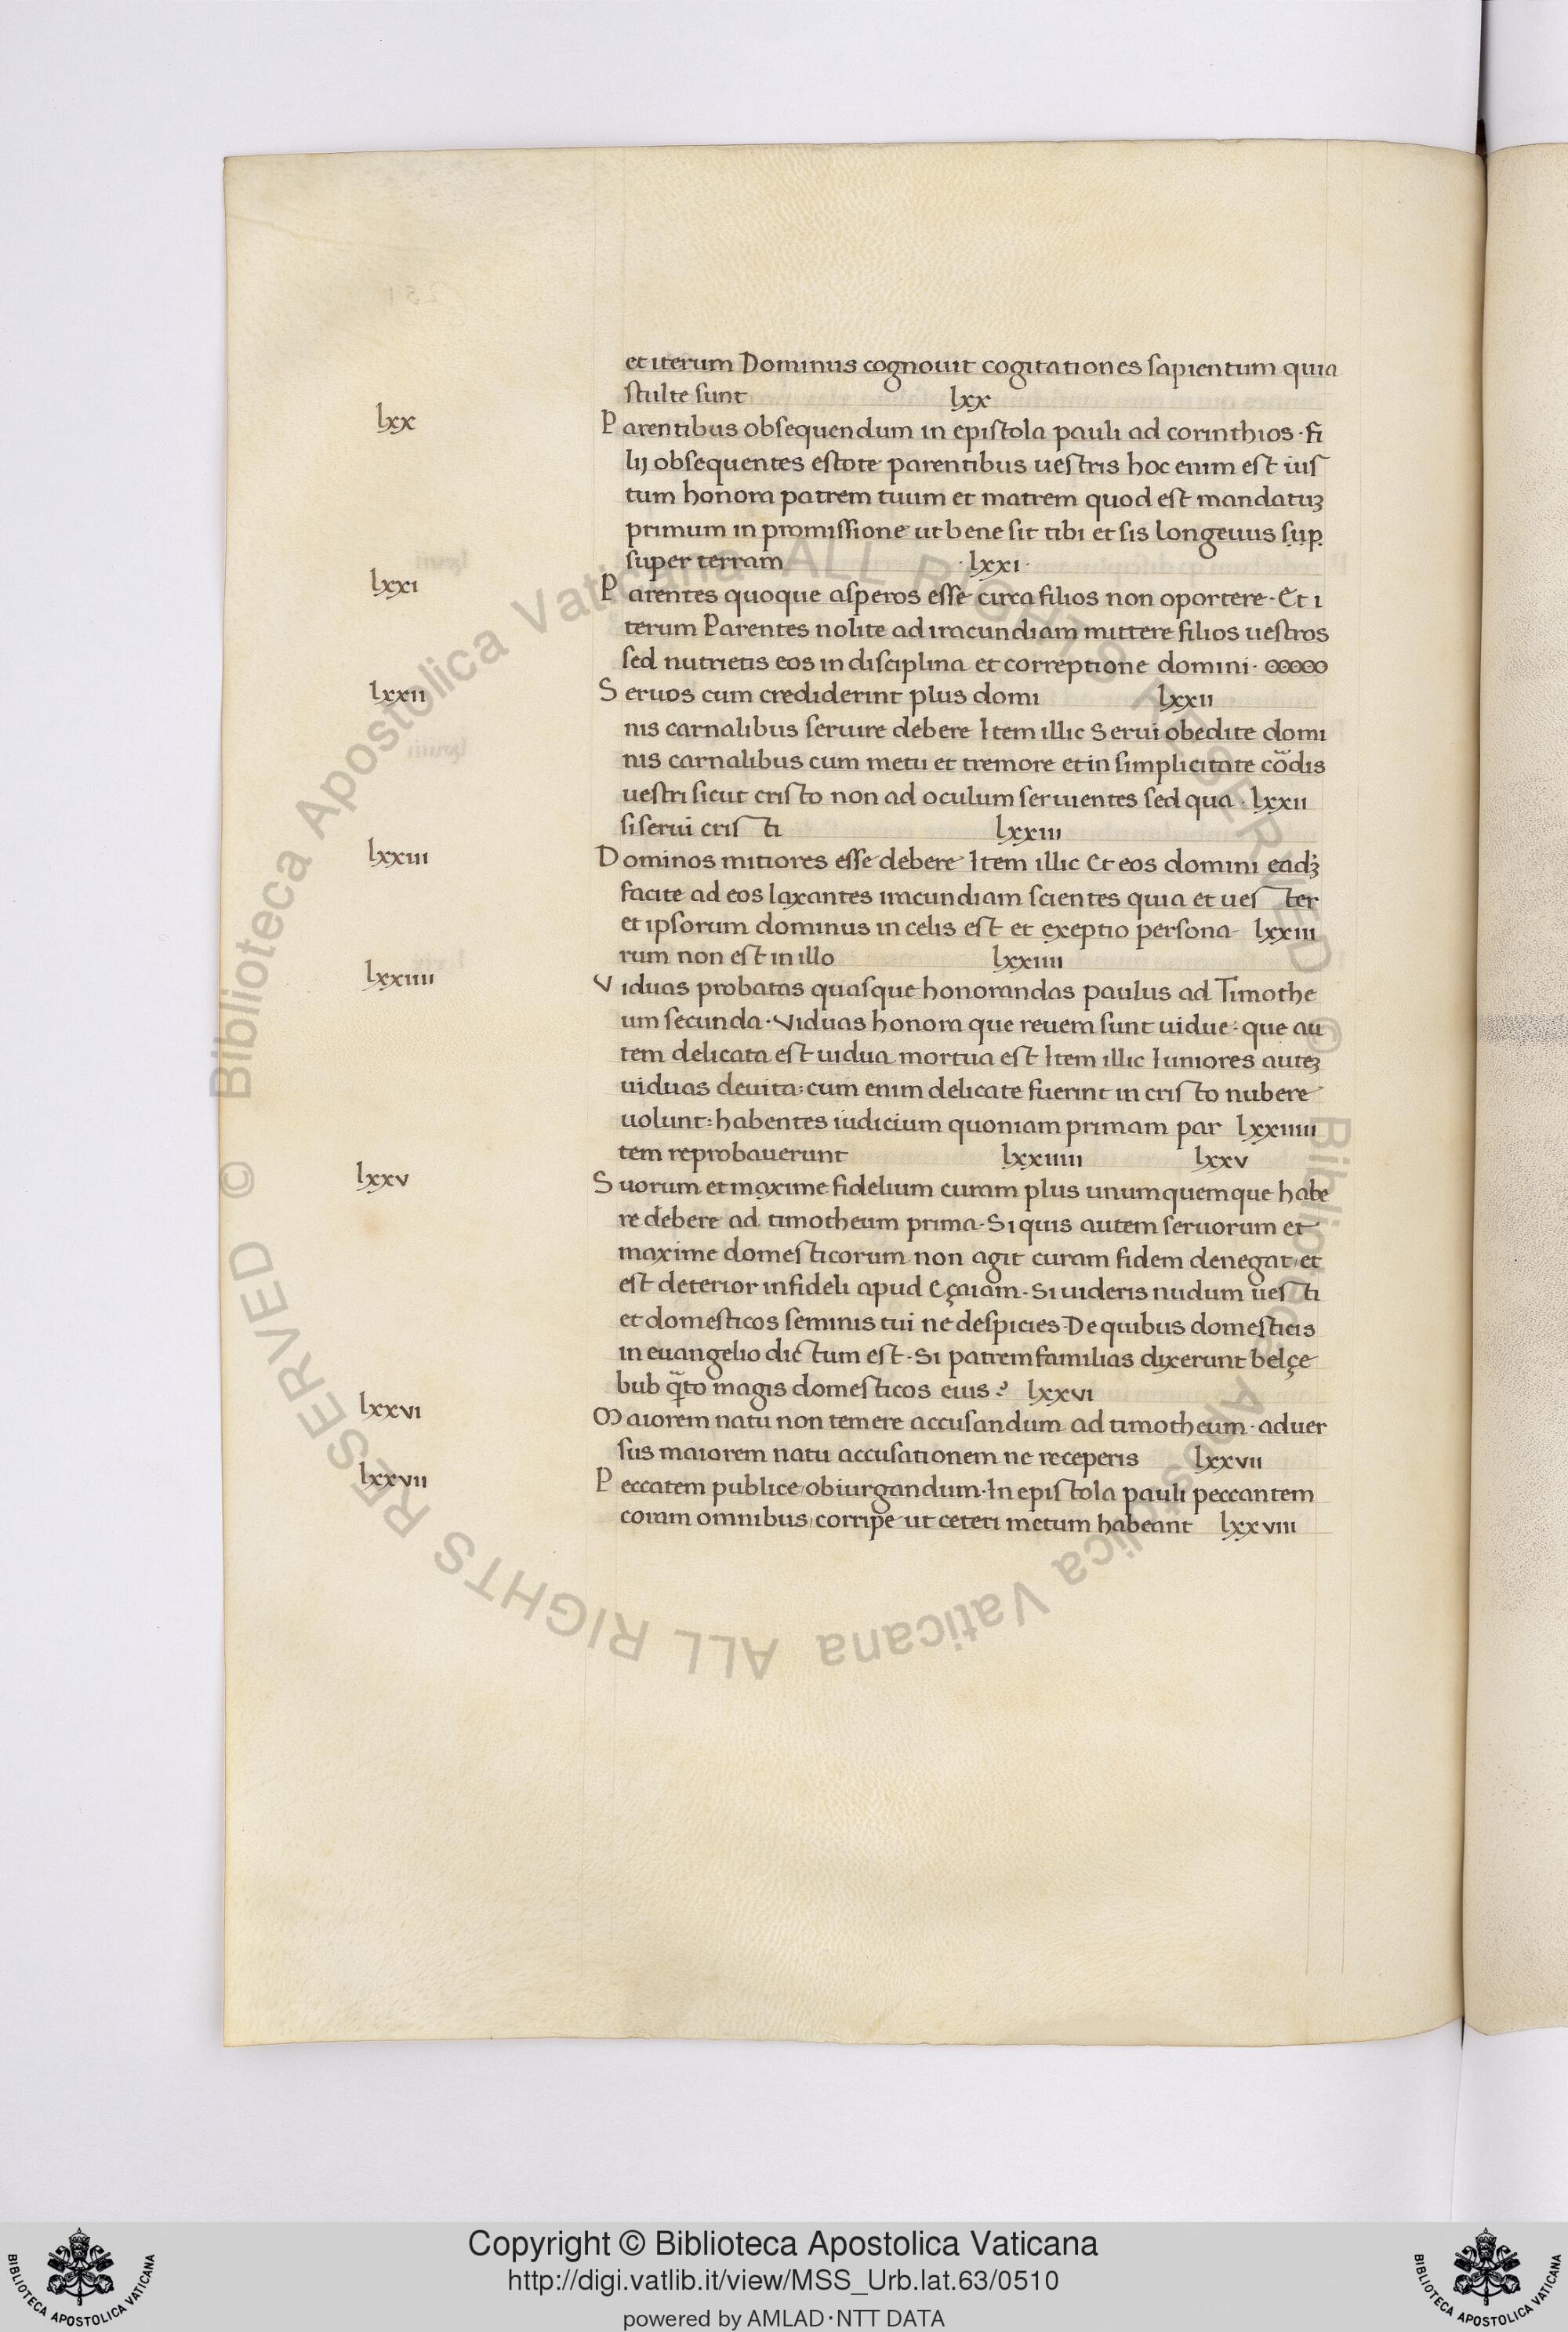 et iterum Dominus cognouit cogitationes sapientum quia
stulte sunt lxx
lxx
Parentibus obsequendum in epistola pauli ad corinthios · fi
lij obsequentes estote parentibus uestris hoc enim est ius
tum honora patrem tuum et matrem quod est mandatuꝫ
primum in promissione ut bene sit tibi et sis longeuus suꝑ
super terram · lxxi ·
lxxi
Parentes quoque asperos esse circa filios non oportere · Et i
terum Parentes nolite ad iracundiam mittere filios uestros
sed nutrietis eos in disciplina et correptione domini · ooooo
lxxii
Seruos cum crediderint plus domi lxxii
nis carnalibus seruire debere Item illic Serui obedite domi
nis carnalibus cum metu et tremore et in simplicitate coᷓdis
uestri sicut cristo non ad oculum seruientes sed qua · lxxii
si serui cristi lxxiii
lxxiii
Dominos mitiores esse debere Item illic Et eos domini eadꝫ
facite ad eos laxantes iracundiam scientes quia et uester
et ipsorum dominus in celis est et exeptio persona- lxxiii
rum non est in illo lxxiiii
lxxiiii
Viduas probatas quasque honorandas paulus ad Timothe
um secunda · Viduas honora que reuera sunt uidue : que au
tem delicata est uidua mortua est Item illic Iuniores auteꝫ
uiduas deuita : cum enim delicate fuerint in cristo nubere
uolunt : habentes iudicium quoniam primam par lxxiiiii
tem reprobauerunt lxxiiiii lxxv
lxxv
Suorum et maxime fidelium curam plus unumquemque habe
re debere ad timotheum prima · Si quis autem seruorum et
maxime domesticorum non agit curam fidem denegat / et
est deterior infideli apud Eçaiam · Si uideris nudum uesti
et domesticos seminis tui ne despicies · De quibus domesticis
in euangelio dictum est · Si patremfamilias dixerunt belçe
bub qᷓto magis domesticos eius ? lxxvi
lxxvi
Maiorem natu non temere accusandum ad timotheum · aduer
sus maiorem natu accusationem ne receperis lxxvii
lxxvii
Peccatem publice / obiurgandum · In epistola pauli peccantem
coram omnibus / corripe ut ceteri metum habeant lxxviii
© Biblioteca Apostolica Vaticana ALL RIGHTS RESERVED © Biblioteca Apostolica Vaticana ALL RIGHTS RESERVED
Copyright © Biblioteca Apostolica Vaticana
http://digi.vatlib.it/view/MSS_Urb.lat.63/0510
powered by AMLAD·NTT DATA
BIBLIOTECA APOSTOLICA VATICANA
BIBLIOTECA APOSTOLICA VATICANA